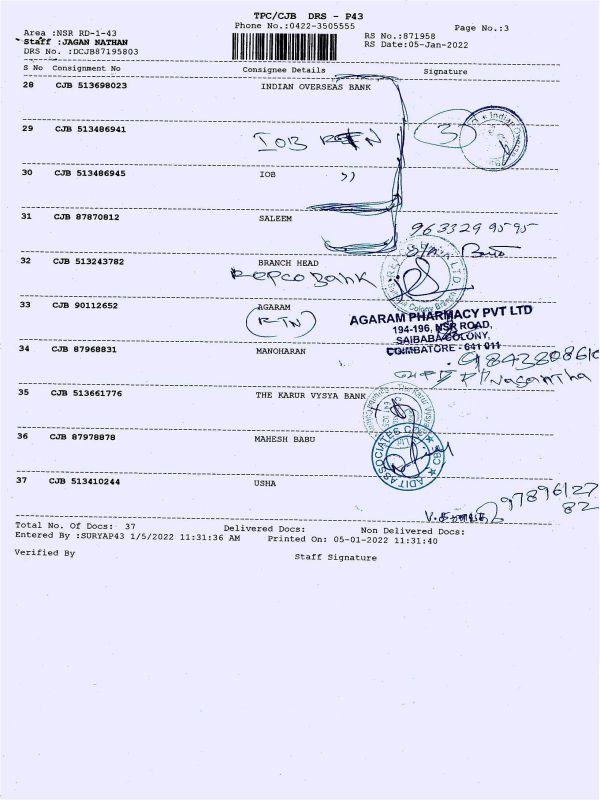 TPC/CJB DRS - P43
Phone No.:0422-3505555
Page No.:3
Area :NSR RD-1-43
Staff :JAGAN NATHAN
DRS No. :DCJB87195803
RS No.:871958
RS Date:05-Jan-2022
S No Consignment No Consignee Details Signature
28 CJB 513698023 INDIAN OVERSEAS BANK
29 CJB 513486941 IOB RTN 3
30 CJB 513486945 IOB ")
31 CJB 87870812 SALEEM
963329 9595
32 CJB 513243782 BRANCH HEAD
Repco Bank
33 CJB 90112652 AGARAM
RTN
AGARAM PHARMACY PVT LTD
194-196, NSR ROAD,
SAIBABA COLONY,
COIMBATORE - 641 011
34 CJB 87968831 MANOHARAN
9843808610
Vasantha
35 CJB 513661776 THE KARUR VYSYA BANK
36 CJB 87978878 MAHESH BABU
ADIT ASSOCIATES CBE
37 CJB 513410244 USHA
97896127
82
Total No. Of Docs: 37 Delivered Docs: Non Delivered Docs:
Entered By :SURYAP43 1/5/2022 11:31:36 AM Printed On: 05-01-2022 11:31:40
Verified By Staff Signature